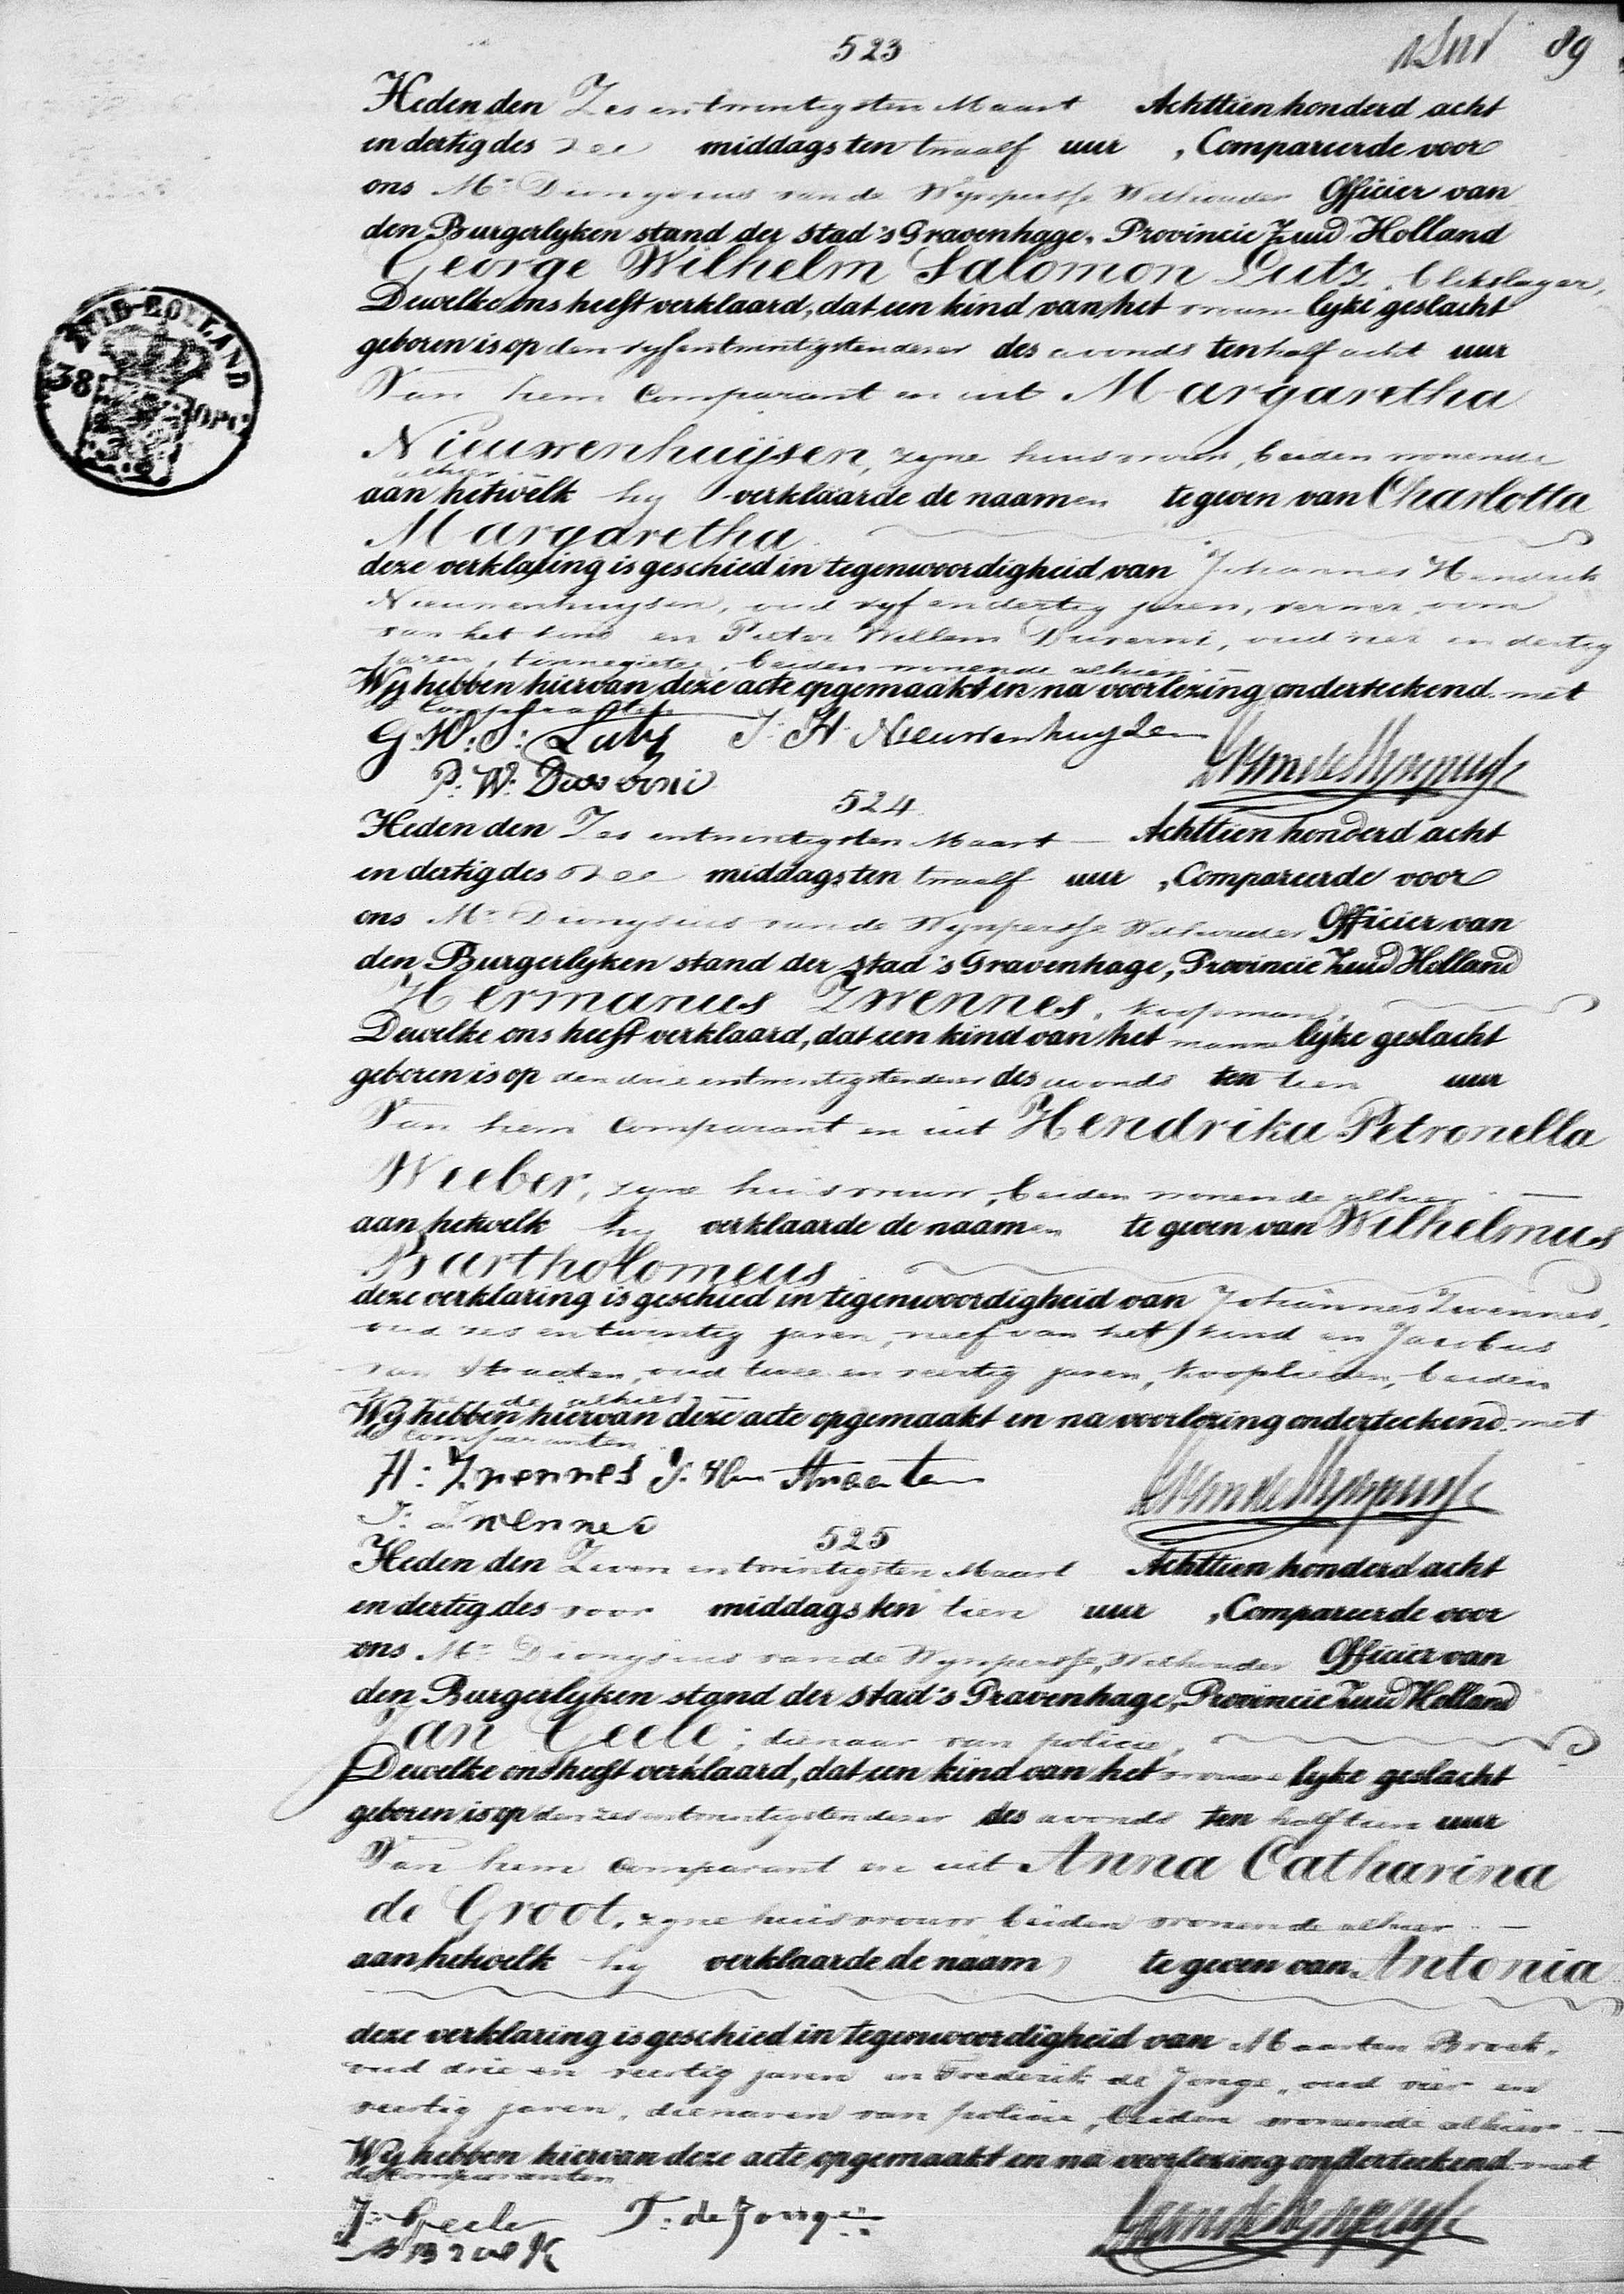 523
89
Heden den Zes en twintigsten Maart Achttien honderd acht
en dertig des middags ten twaalf uur, Compareerde voor
ons Mr. Dionysius van de Wynpersse Wethouder Officier van
den Burgerlyken stand der stad 's Gravenhage, Provincie Zuid Holland
George Wilhelm Salomon Lutz, blikslager,
Dewelke ons heeft verklaard, dat een kind van het vrouwelyke geslacht
geboren is op den vyf en twintigsten dezer des avonds ten half acht uur
Van hem Comparant en uit Margaretha
Nieuwenhuijsen, zyne huisvrouw, beiden wonende
alhier
aan hetwelk hy verklaarde de naamen te geven van Charlotta
Margaretha
deze verklaring is geschied in tegenwoordigheid van Johannes Hendrik
Nieuwenhuysen, oud vyf en dertig jaren, verwer, oom
van het kind en Pieter Willem Duverni, oud vier en dertig
jaren, tinnegieter, beiden wonende alhier.
Wy hebben hiervan deze acte opgemaakt en na voorlezing onderteekend met
de Comparanten
G: W: S: Lutz J. H. Nieuwenhuyzen
P: W: Duverni
ZUID-HOLLAND
38 OPC
524
Heden den Zes en twintigsten Maart Achttien honderd acht
en dertig des middags ten twaalf uur, Compareerde voor
ons Mr. Dionysius van de Wynpersse Wethouder Officier van
den Burgerlyken stand der stad 's Gravenhage, Provincie Zuid Holland
Hermanus Zwennes, koopman,
Dewelke ons heeft verklaard, dat een kind van het mannelyke geslacht
geboren is op den drie en twintigsten dezer des avonds ten tien uur
Van hem Comparant en uit Hendrika Petronella
Weeber, zyne huisvrouw, beiden wonende alhier.
aan hetwelk hy verklaarde de naamen te geven van Wilhelmus
Bartholomeus
deze verklaring is geschied in tegenwoordigheid van Johannes Zwennes,
oud zes en twintig jaren, neef van het kind en Jacobus
van Straaten, oud twee en veertig jaren, kooplieden, beiden
wonende alhier.
Wy hebben hiervan deze acte opgemaakt en na voorlezing onderteekend met
de Comparanten
H: Zwennes J. van Straaten
J: Zwennes
525
Heden den Zeven en twintigsten Maart Achttien honderd acht
en dertig des voor middags ten tien uur, Compareerde voor
ons Mr. Dionysius van de Wynpersse, Wethouder Officier van
den Burgerlyken stand der stad 's Gravenhage, Provincie Zuid Holland
Jan Geele, dienaar van policie,
Dewelke ons heeft verklaard, dat een kind van het vrouwelyke geslacht
geboren is op den zes en twintigsten dezer des avonds ten half tien uur
Van hem Comparant en uit Anna Catharina
de Groot, zyne huisvrouw, beiden wonende alhier.
aan hetwelk hy verklaarde de naam te geven van Antonia
deze verklaring is geschied in tegenwoordigheid van Maarten Broek,
oud drie en veertig jaren en Frederik de Jonge, oud vier en
veertig jaren, dienaren van policie, beiden wonende alhier.
Wy hebben hiervan deze acte opgemaakt en na voorlezing onderteekend met
de Comparanten
J: Geele F: de Jonge
M Broek